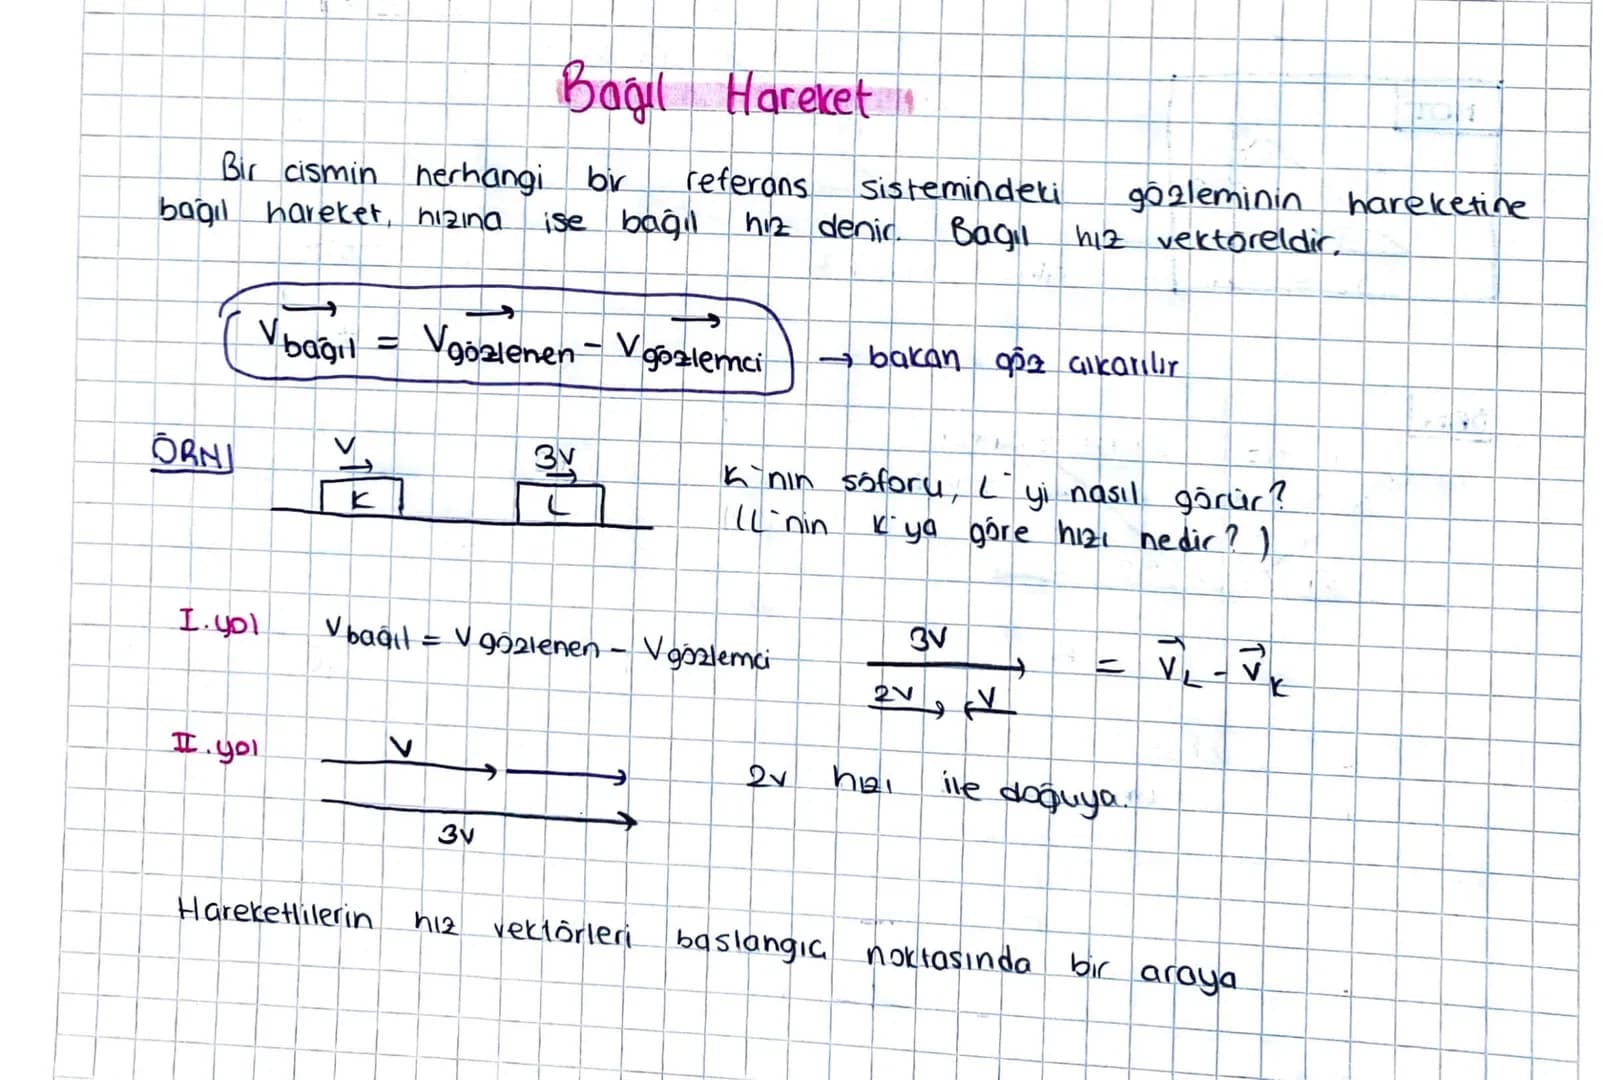 Bağıl Hareket
Bir cismin herhangi bir referans sistemindeki gözleminin hareketine
bağıl hareket, hızına ise bağıl hız denir. Bagıl hız vektöreldir.
Vbağıl = Vgözlenen - Vgözlemci → bakan göz çıkarılır
ÖRN1
V 3V
K L
K'nın söforu, L'yi nasıl görür?
(L'nin K'ya göre hızı nedir?)
I.yol Vbağıl = Vgözlenen - Vgözlemci
3V
2V V
= VL - VK
II.yol V
2v hızı ile doğuya.
3V
Hareketlilerin hız vektörleri baslangıç noktasında bir araya